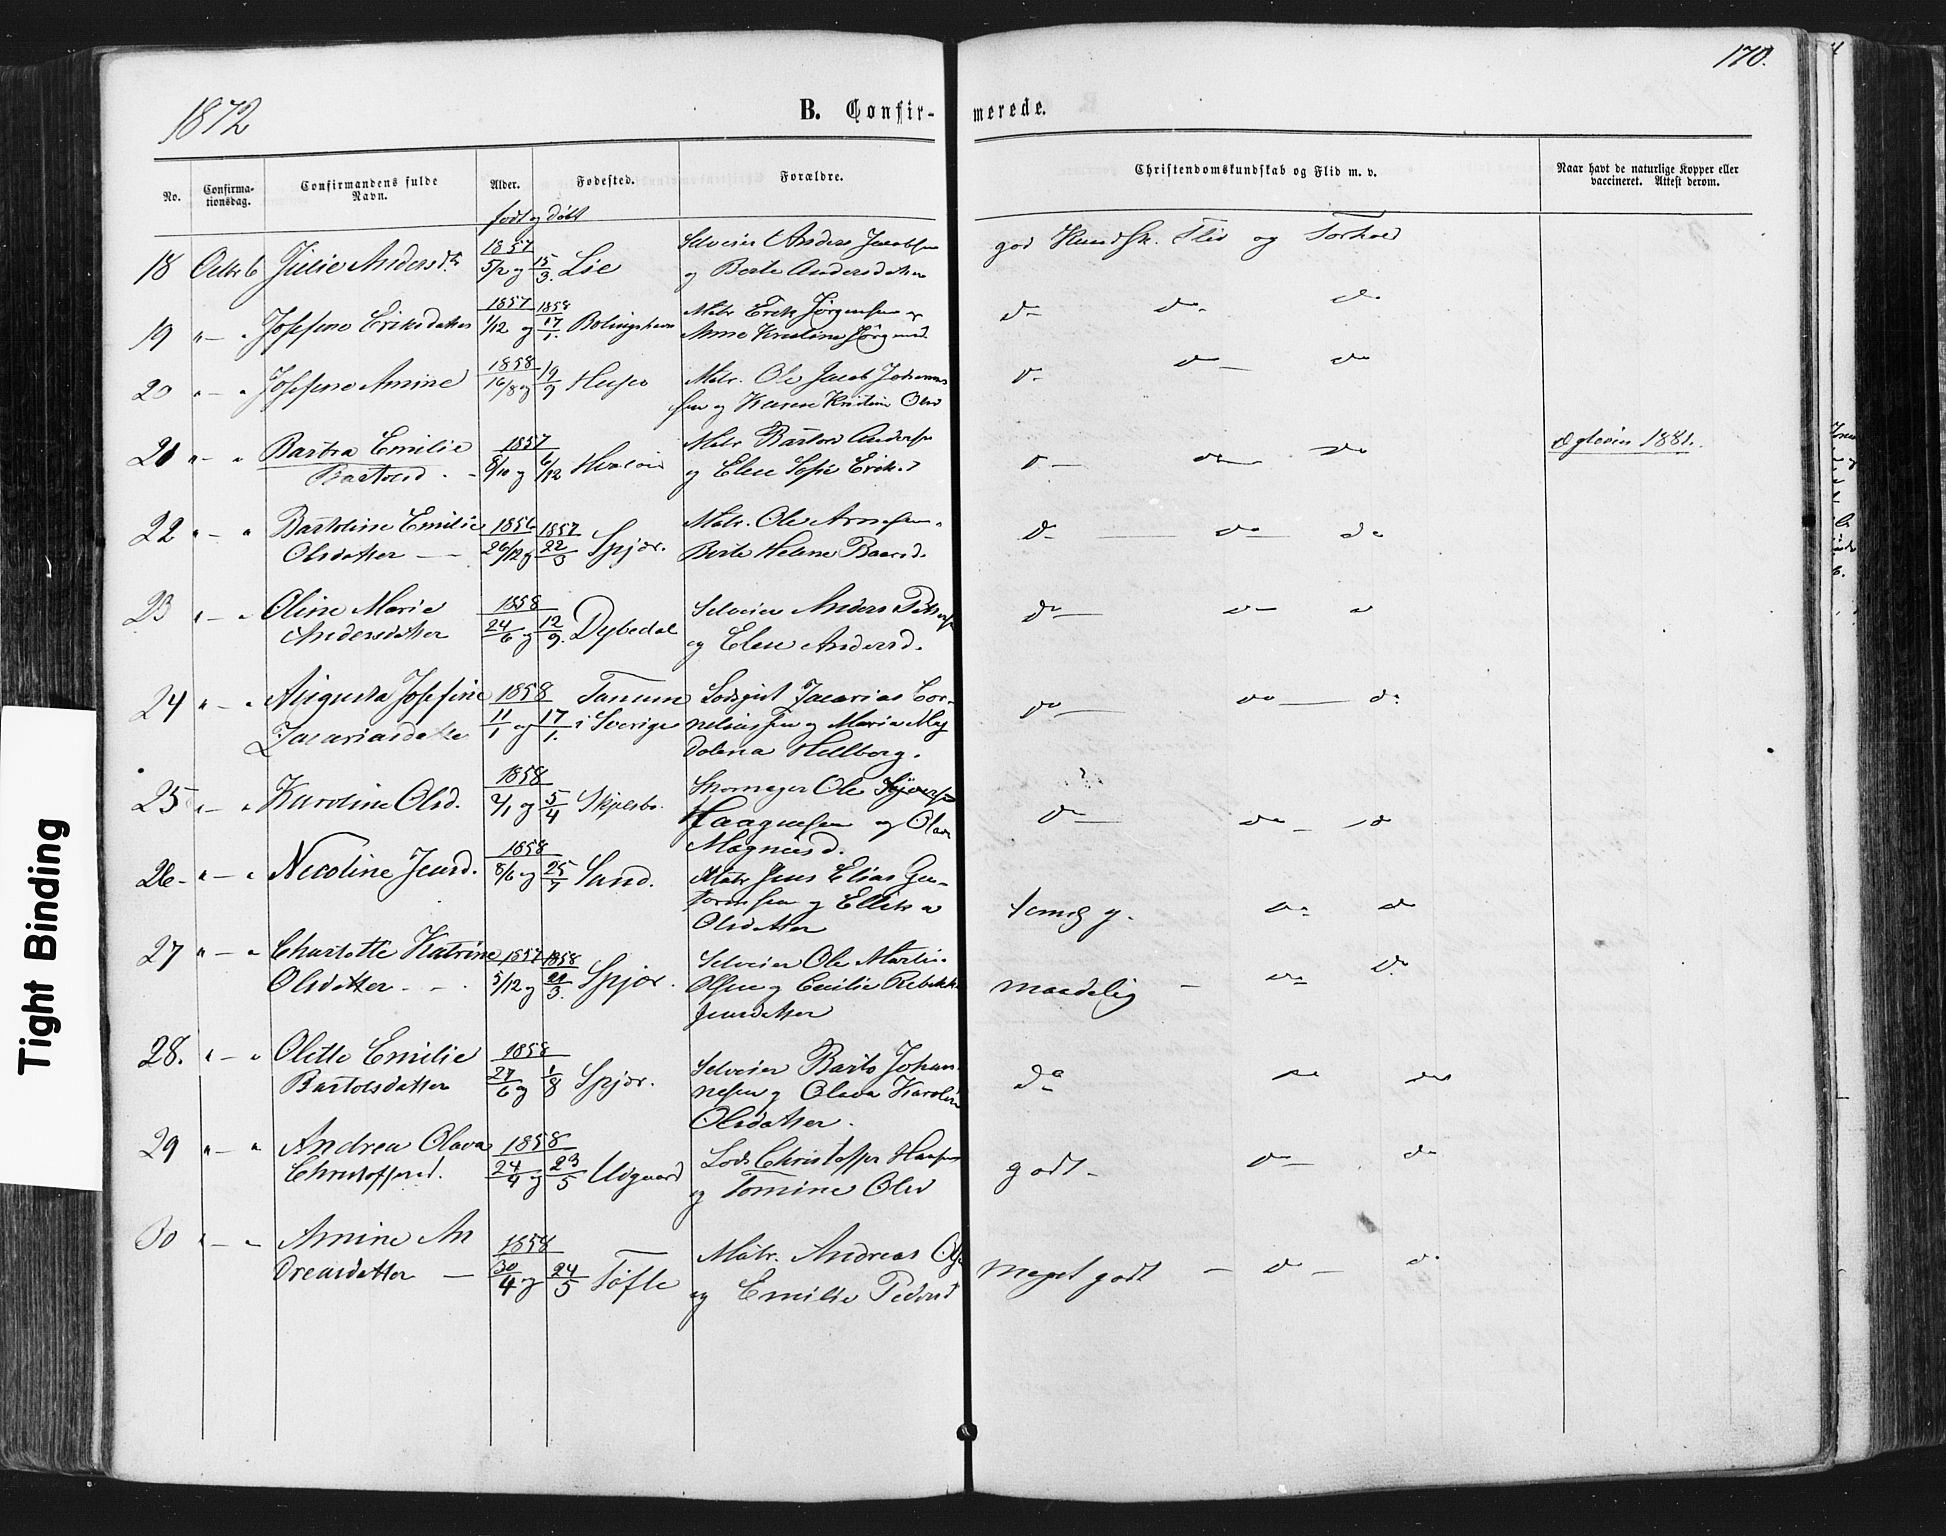 170.
1872
B. Confirmerede.
No. Confirmationsdag. Confirmandens fulde Navn. Alder. Fødested. Forældre. Christendomskundskab og Flid m. v. Naar havt de naturlige Kopper eller vaccineret. Attest derom.
født og døbt
18 Octbr 6 Julie Andersdtr 1857 5/2 og 15/3. Lie Selveier Anders Jacobsen
og Berte Andersdatter god Kundsk. Flid og Forhold
19 " — " Josefine Eriksdatter 1857 1/12 og 1858 17/1. Matr Erik Jørgensen &
Anne Kristine Jörgensd d- do- do
20 " — " Josefine Amine 1858 16/8 og 19/9 Matr. Ole Jacob Johannes
sen og Karen Kristine Olsd d- do- do
21 " — " Bartra Emilie 1857
Bartoesd. - 8/10 og 6/12 Matr Anders
og Elen Sofie Eriksd d- do- do
1881.
22 " — " Bartoline Emilie 1856 1857 Matr. Ole Arnesen.
Olsdatter — 26/12 og 22/3 Spjær. Berte Helene d- do do
23 " — " Oline Marie 1858 Selveier Anders
Andersdatter 24/6 og 12/9. Dybedal og Elen Andersd. do- do-
24 " — " Augusta Josefine 1858 Tanum Lods Zacarias Cor-
Zacariasdatter 11/1 og 17/1. i Sverige neliussen og Maria Mag
dolena Hellborg. do- do- do
25 " — " Karoline Olsd. 1858 2/1 og 5/4 Skjelsbo. Skomager Ole
Haagensen og Olava
Magnusd. do- do- do
26- " — " Necoline Jensd. 1858 8/6 og 25/7 Sand. Matr Jens Elias Gu-
tormsen og
Olsdatter temlg g. do- do
27 " — " Charlotte Katrine 1857 1858 Selveier Ole Martin
Olsdatter. - . 5/12 og 21/3. Spjær. Olsen og Emilie Rebekka
Jensdatter maadelig - do do
28. " — " Olette Emilie 1858 Selveier Johan-
Bartolsdatter 27/6 og 1/8 Spjær. nesen og Olava Karoline
Olsdatter. do do do
29 " — " Andrea Olava 1858 Lods Christoffer Hansen
Christoffersd. 24/4 og 23/5 Utgaard og Tomine Olsd godt- do- do
30 " — " Amine An 1858 Matr. Andreas Ols
dreasdatter — 30/4 og 24/5 Tofte og Emilie Pedersd Meget godt — do — do
Tight Binding